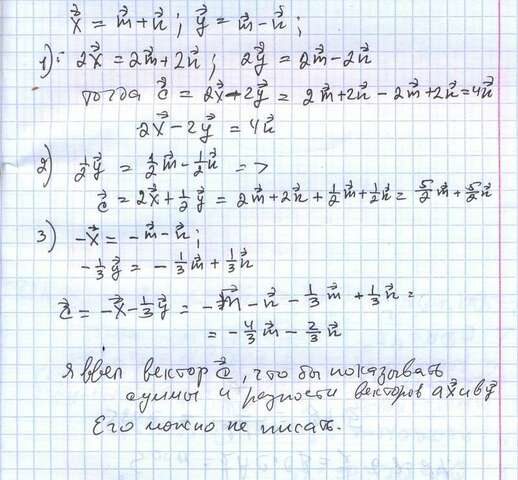 x⃗ = m⃗ + n⃗ ; y⃗ = m⃗ - n⃗ ;
1): 2x⃗ = 2m⃗ + 2n⃗ ; 2y⃗ = 2m⃗ - 2n⃗
тогда c⃗ = 2x⃗ - 2y⃗ = 2m⃗ + 2n⃗ - 2m⃗ + 2n⃗ = 4n⃗
2x⃗ - 2y⃗ = 4n⃗
2) 1/2 y⃗ = 1/2 m⃗ - 1/2 n⃗ =>
c⃗ = 2x⃗ + 1/2 y⃗ = 2m⃗ + 2n⃗ + 1/2 m⃗ + 1/2 n⃗ = 5/2 m⃗ + 5/2 n⃗
3) -x⃗ = -m⃗ - n⃗ ;
-1/3 y⃗ = -1/3 m⃗ + 1/3 n⃗
c⃗ = -x⃗ - 1/3 y⃗ = -m⃗ - n⃗ - 1/3 m⃗ + 1/3 n⃗ =
= -4/3 m⃗ - 2/3 n⃗
Я ввел вектор c⃗, что бы показывать
суммы и разности векторов ax⃗ и by⃗
Его можно не писать.